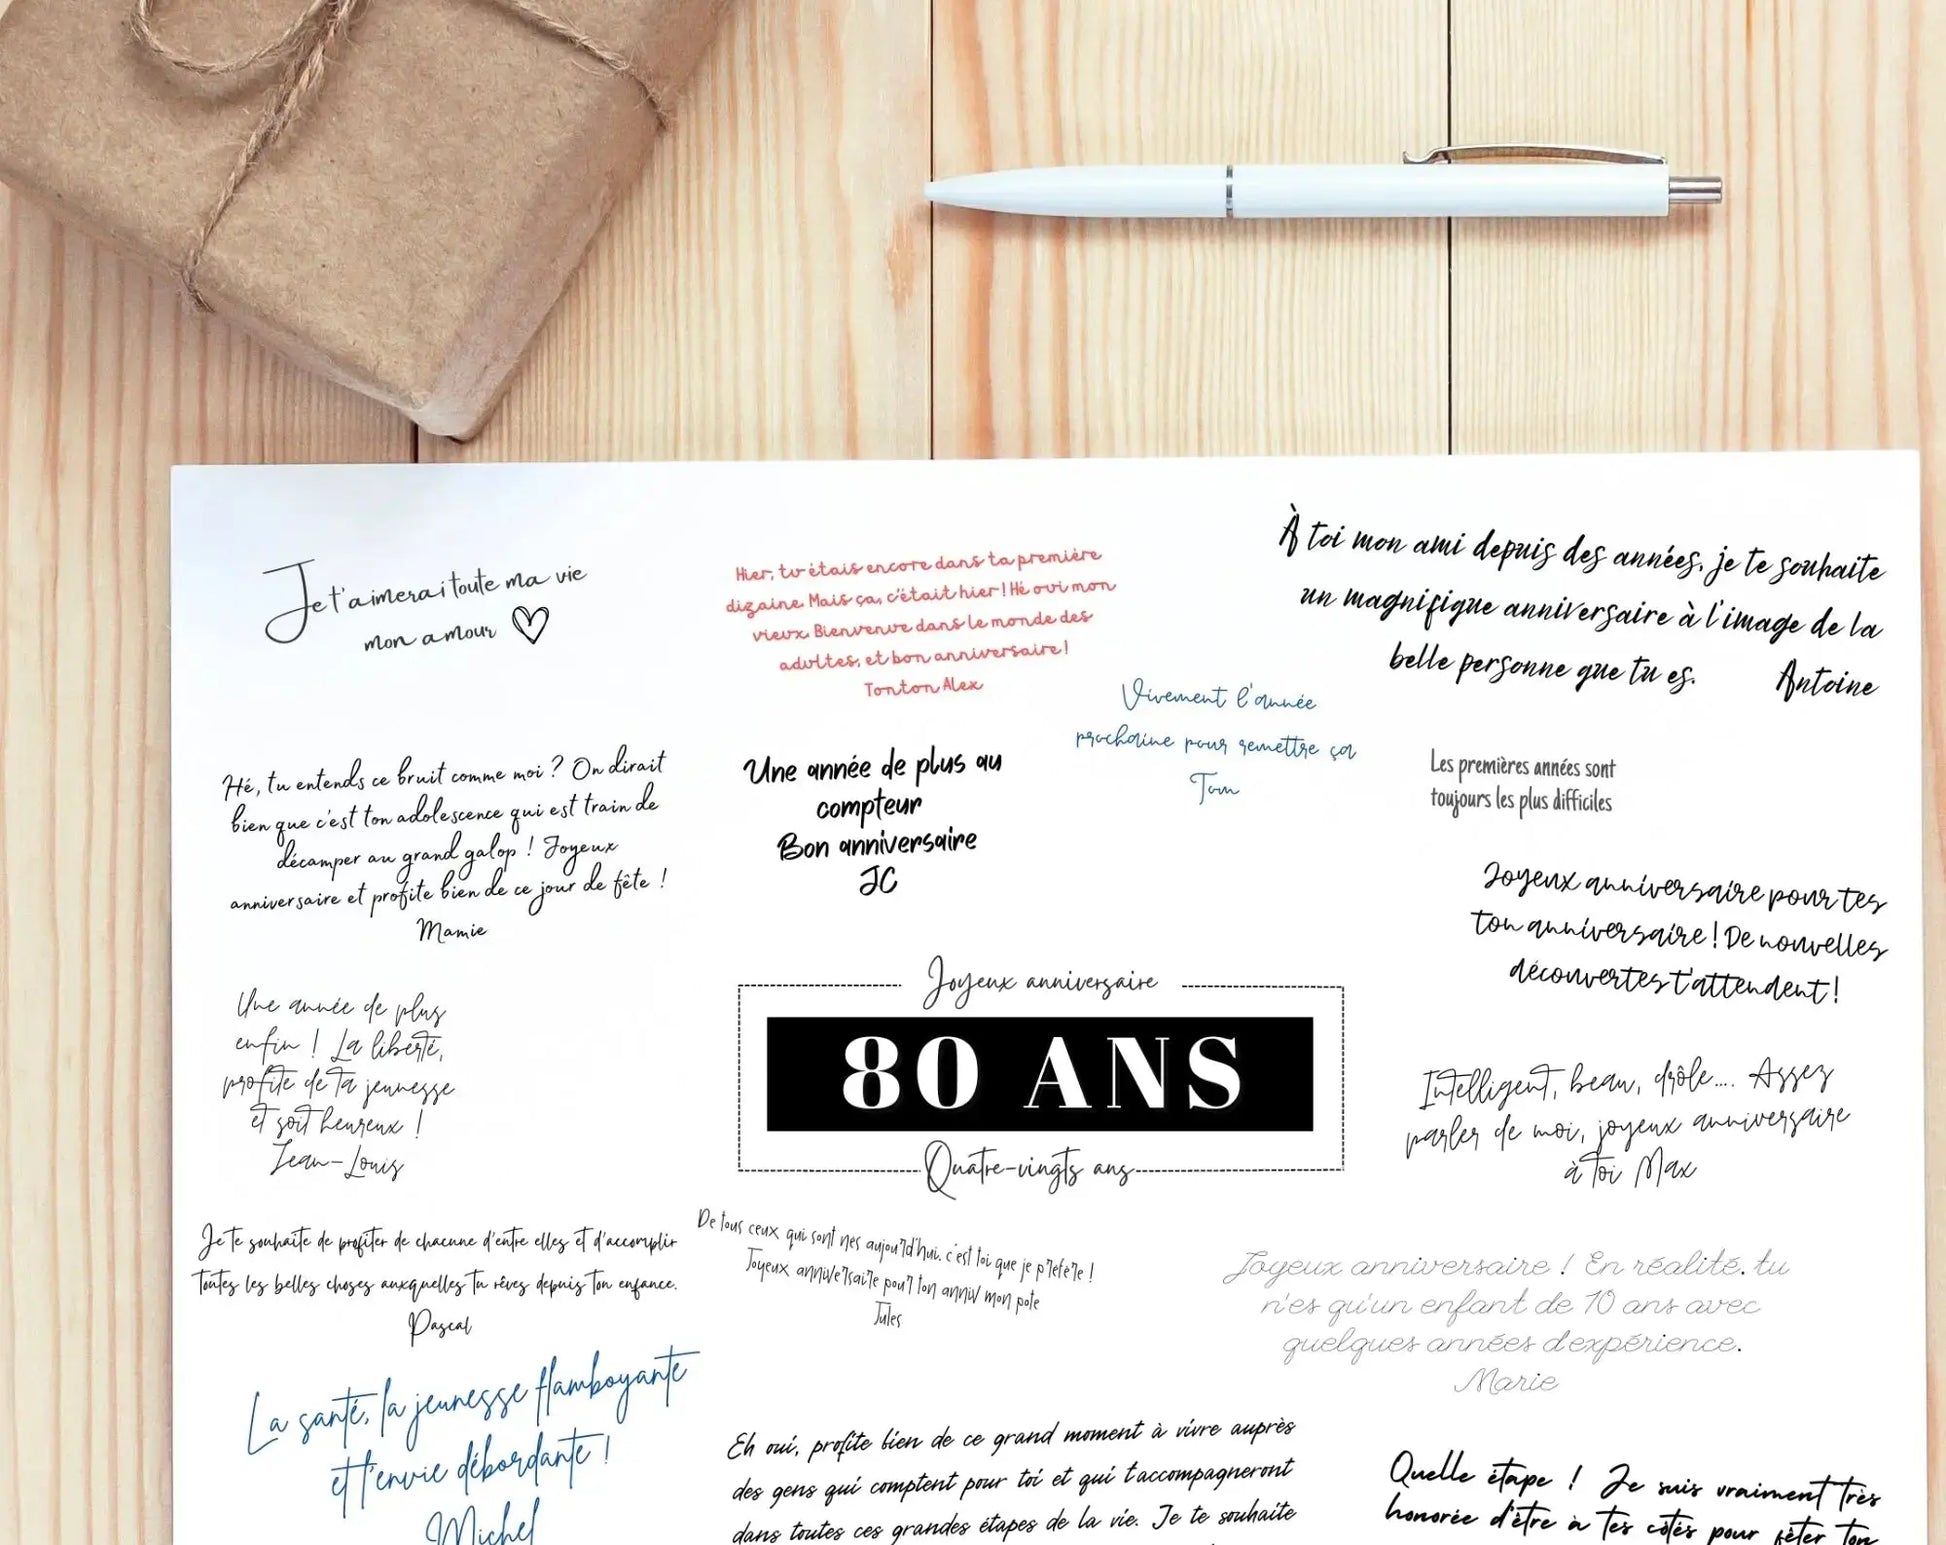 Je t'aimerai toute ma vie
mon amour
Hier, tu étais encore dans ta première
dizaine. Mais ça, c'était hier ! Hé oui mon
vieux. Bienvenue dans le monde des
adultes, et bon anniversaire !
Tonton Alex
À toi mon ami depuis des années, je te souhaite
un magnifique anniversaire à l'image de la
belle personne que tu es.
Antoine
Vivement l'année
prochaine pour remettre ça
Tom
Hé, tu entends ce bruit comme moi ? On dirait
bien que c'est ton adolescence qui est train de
décamper au grand galop ! Joyeux
anniversaire et profite bien de ce jour de fête !
Mamie
Une année de plus au
compteur
Bon anniversaire
JC
Les premières années sont
toujours les plus difficiles
Joyeux anniversaire pour tes
ton anniversaire ! De nouvelles
découvertes t'attendent !
Une année de plus
enfin ! La liberté,
profite de ta jeunesse
et soit heureux !
Jean-Louis
Joyeux anniversaire
80 ANS
Quatre-vingts ans
Intelligent, beau, drôle.... Assez
parler de moi, joyeux anniversaire
à toi Max
Je te souhaite de profiter de chacune d'entre elles et d'accomplir
toutes les belles choses auxquelles tu rêves depuis ton enfance.
Pascal
De tous ceux qui sont nes aujourd'hui. c'est toi que je préfère !
Joyeux anniversaire pour ton anniv mon pote
Jules
Joyeux anniversaire ! En réalité. tu
n'es qu'un enfant de 10 ans avec
quelques années d'expérience.
Marie
La santé, la jeunesse flamboyante
et l'envie débordante !
Michel
Eh oui, profite bien de ce grand moment à vivre auprès
des gens qui comptent pour toi et qui t'accompagneront
dans toutes ces grandes étapes de la vie. Je te souhaite
Quelle étape ! Je suis vraiment très
honorée d'être à tes côtés pour fêter ton